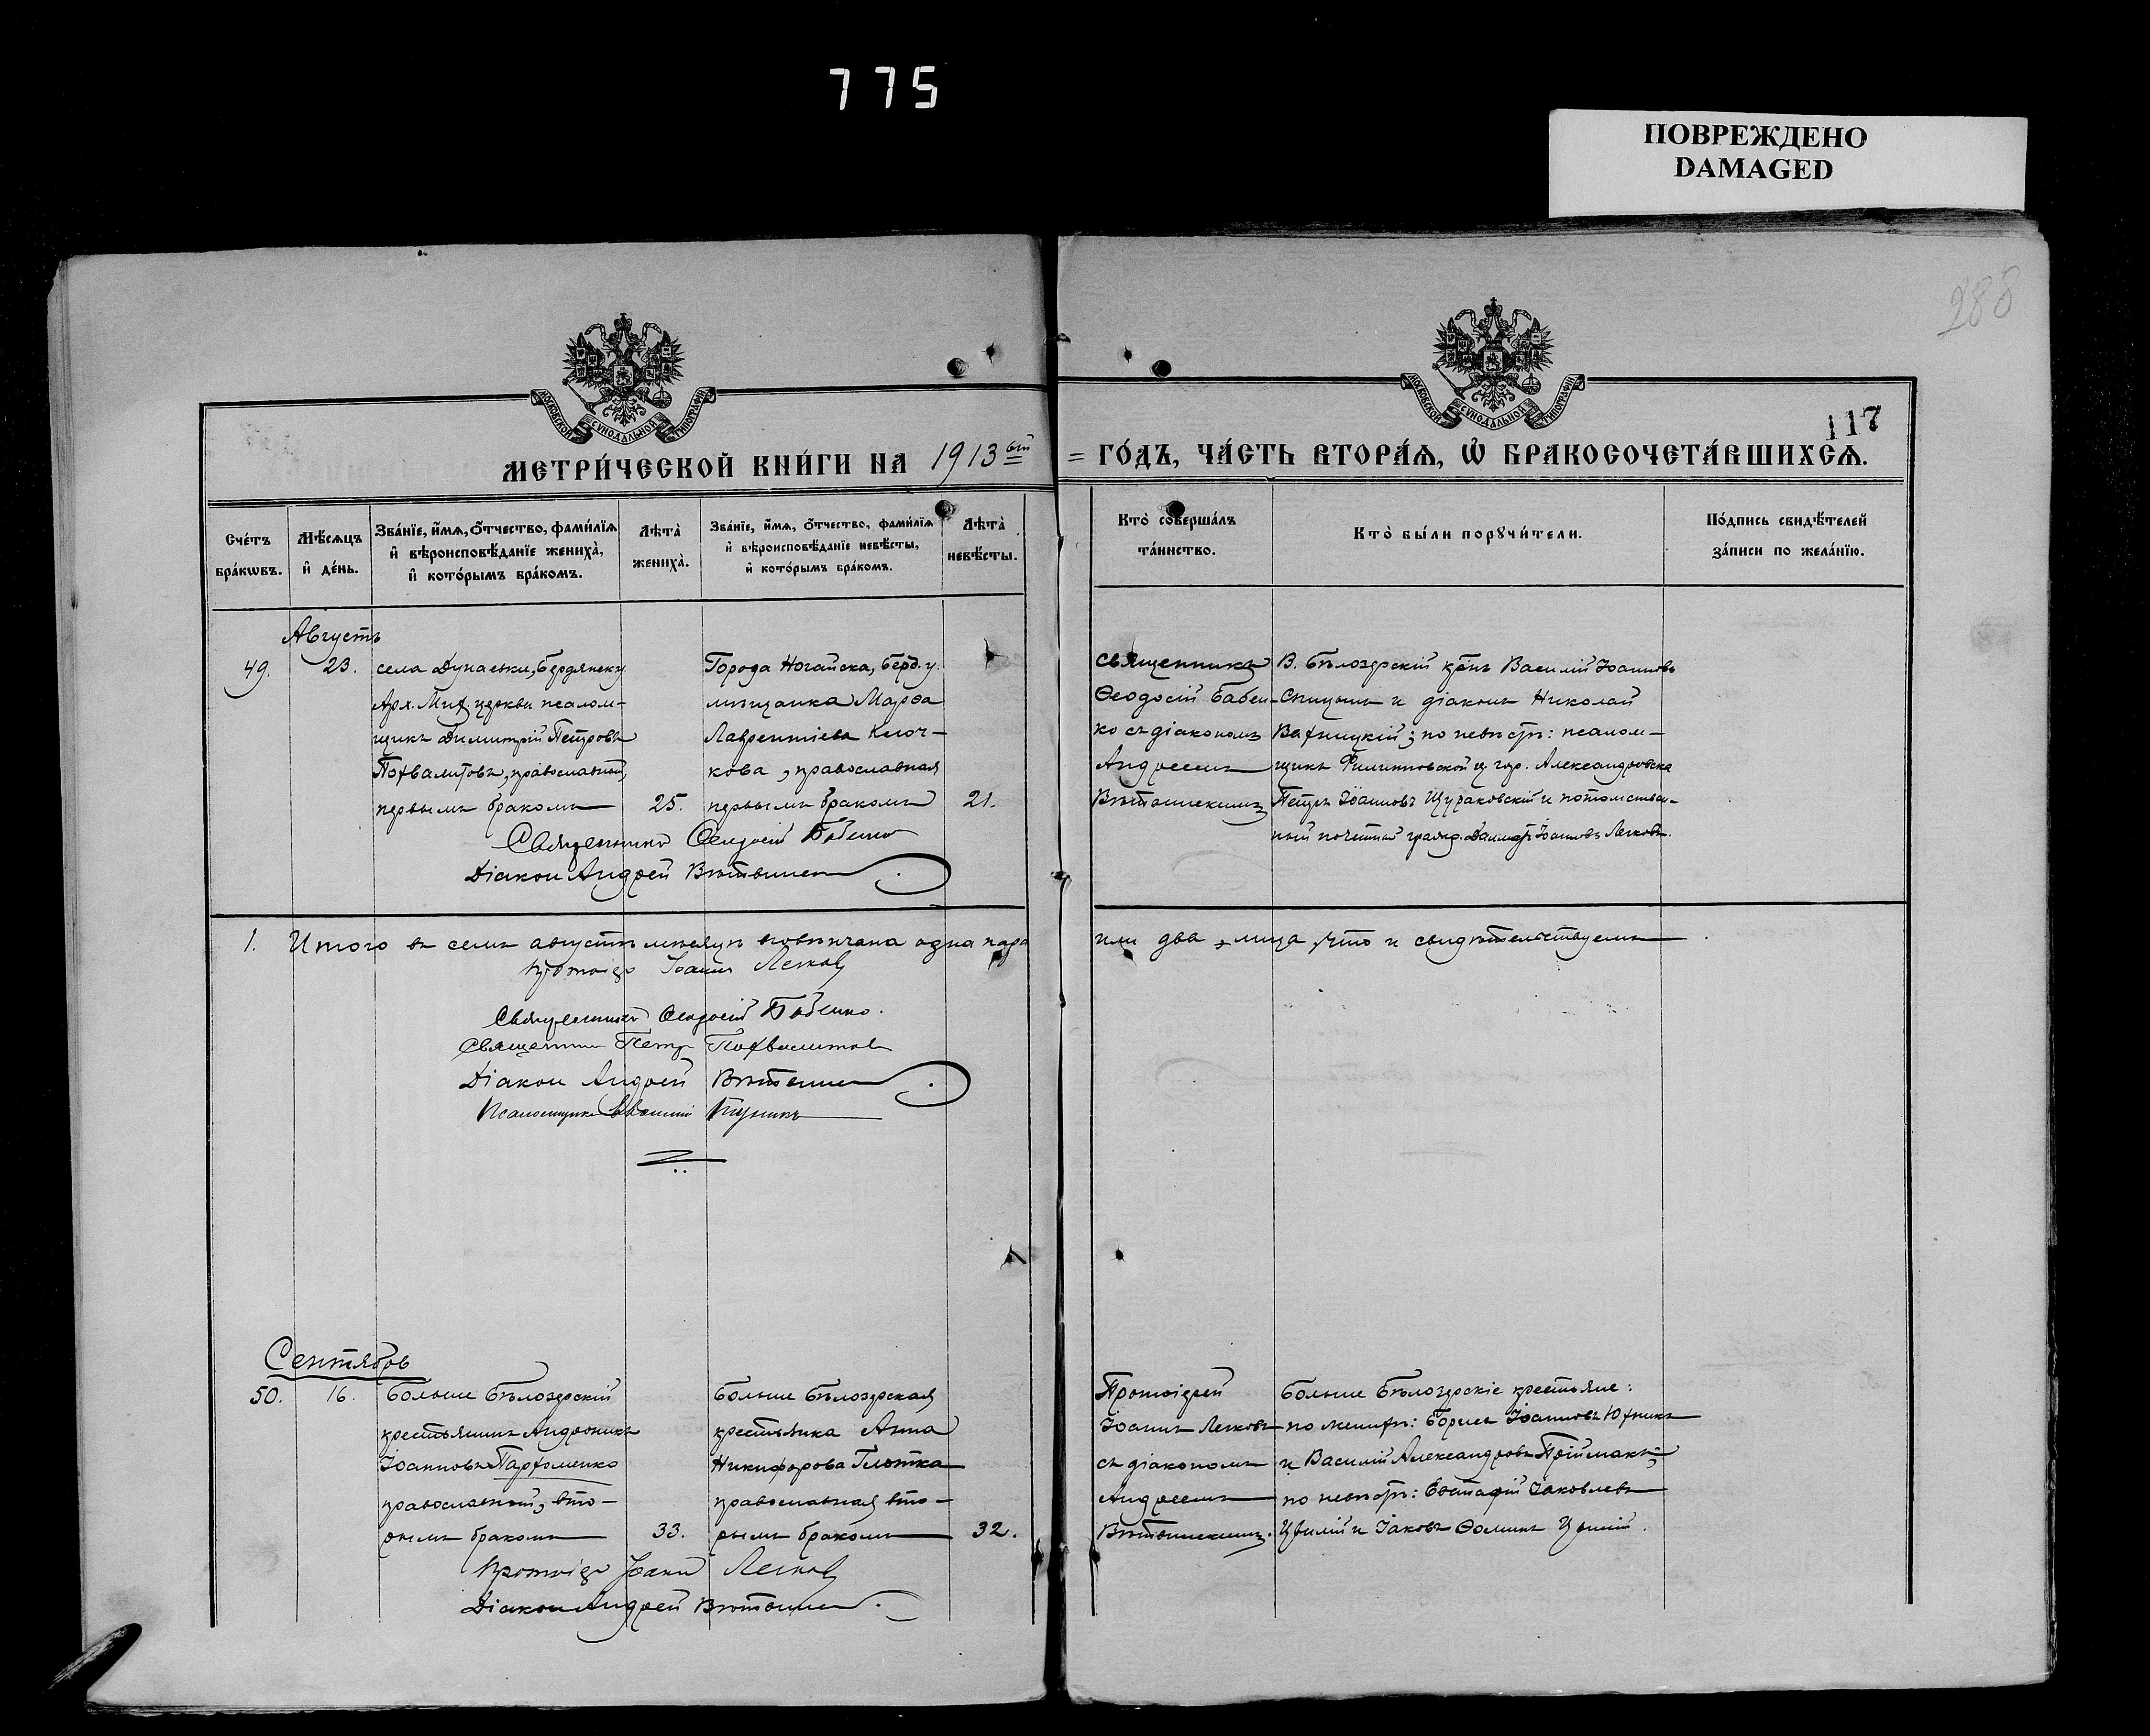 775
ПОВРЕЖДЕНО
DAMAGED
288
117
МОСКОВСКОЙ СѴНОДАЛЬНОЙ ТИПОГРАФІИ
МОСКОВСКОЙ СѴНОДАЛЬНОЙ ТИПОГРАФІИ
МЕТРИ́ЧЕСКОЙ КНИ́ГИ НА 1913ый
= ГО́ДЪ, ЧА́СТЬ ВТОРА́Ѧ, Ѡ҆ БРАКОСОЧЕТА́ВШИХСѦ.
Сче́тъ бра́кѡвъ.
Мѣ́сѧцъ и҆ де́нь.
Зва́нїе, и҆́мѧ, о҆́тчество, фами́лїѧ и҆ вѣроисповѣ́данїе жениха̀, и҆ кото́рымъ бра́комъ.
Лѣта̀ жениха̀.
Зва́нїе, и҆́мѧ, о҆́тчество, фами́лїѧ и҆ вѣроисповѣ́данїе невѣ́сты, и҆ кото́рымъ бра́комъ.
Лѣта̀ невѣ́сты.
Кто̀ соверша́лъ та́инство.
Кто̀ бы́ли порꙋчи́тели.
По́дпись свидѣ́телей за́писи по жела́нїю.
Августъ
49.
23.
села Дунаевки, Бердянск. у.
Арх. Мих. церкви псалом-
щикъ Димитрій Петровъ
Похвалитовъ, православный,
первымъ бракомъ
25.
Города Ногайска, Берд. у.
мѣщанка Марфа
Лаврентіева Клюг-
кова, православная
первымъ бракомъ
21.
Священникъ
Ѳеодосій Бабен-
ко съ діакономъ
Андреемъ
В. Бѣлозерскій крнъ Василій Іоанновъ
и діаконъ Николай
по невѣстѣ: псалом-
щикъ Филипповской ц. гор. Александровска
Петръ Іоанновъ Щураковскій и потомствен-
ный почетный гражд. Іоанновъ Легковъ.
Священникъ Ѳеодосій Бабенко
Діаконъ Андрей
1. Итого въ семъ августѣ мѣсяцѣ повѣнчана одна пара
или два лица, что и свидѣтельствуемъ
Протоіер Іоаннъ Легковъ
Священникъ Ѳеодосій Бабенко.
Священникъ Петръ Похвалитовъ
Діаконъ Андрей
Псаломщикъ
Сентябрь
50.
16.
Больше Бѣлозерскій
крестьянинъ Андроникъ
Іоанновъ Пархоменко
православный, вто-
рымъ бракомъ
33.
Больше Бѣлозерская
крестьянка Анна
Никифорова Глотка
православная вто-
рымъ бракомъ
32.
Протоіерей
Іоаннъ Легковъ
съ діакономъ
Андреемъ
Больше Бѣлозерскіе крестьяне:
по женихѣ: Борисъ Іоанновъ Юхникъ
и Василій Александровъ Пріймакъ;
по невѣстѣ: Евстафій Іаковлевъ
Цвилій и Іаковъ Ѳоминъ Цвилій.
Протоіер Іоаннъ Легковъ
Діаконъ Андрей